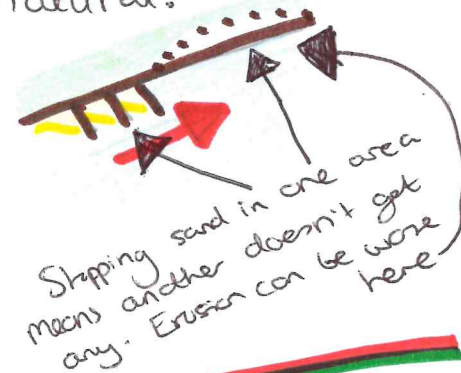 natural.
Stopping sand in one area
means another doesn't get
any. Erosion can be worse
here